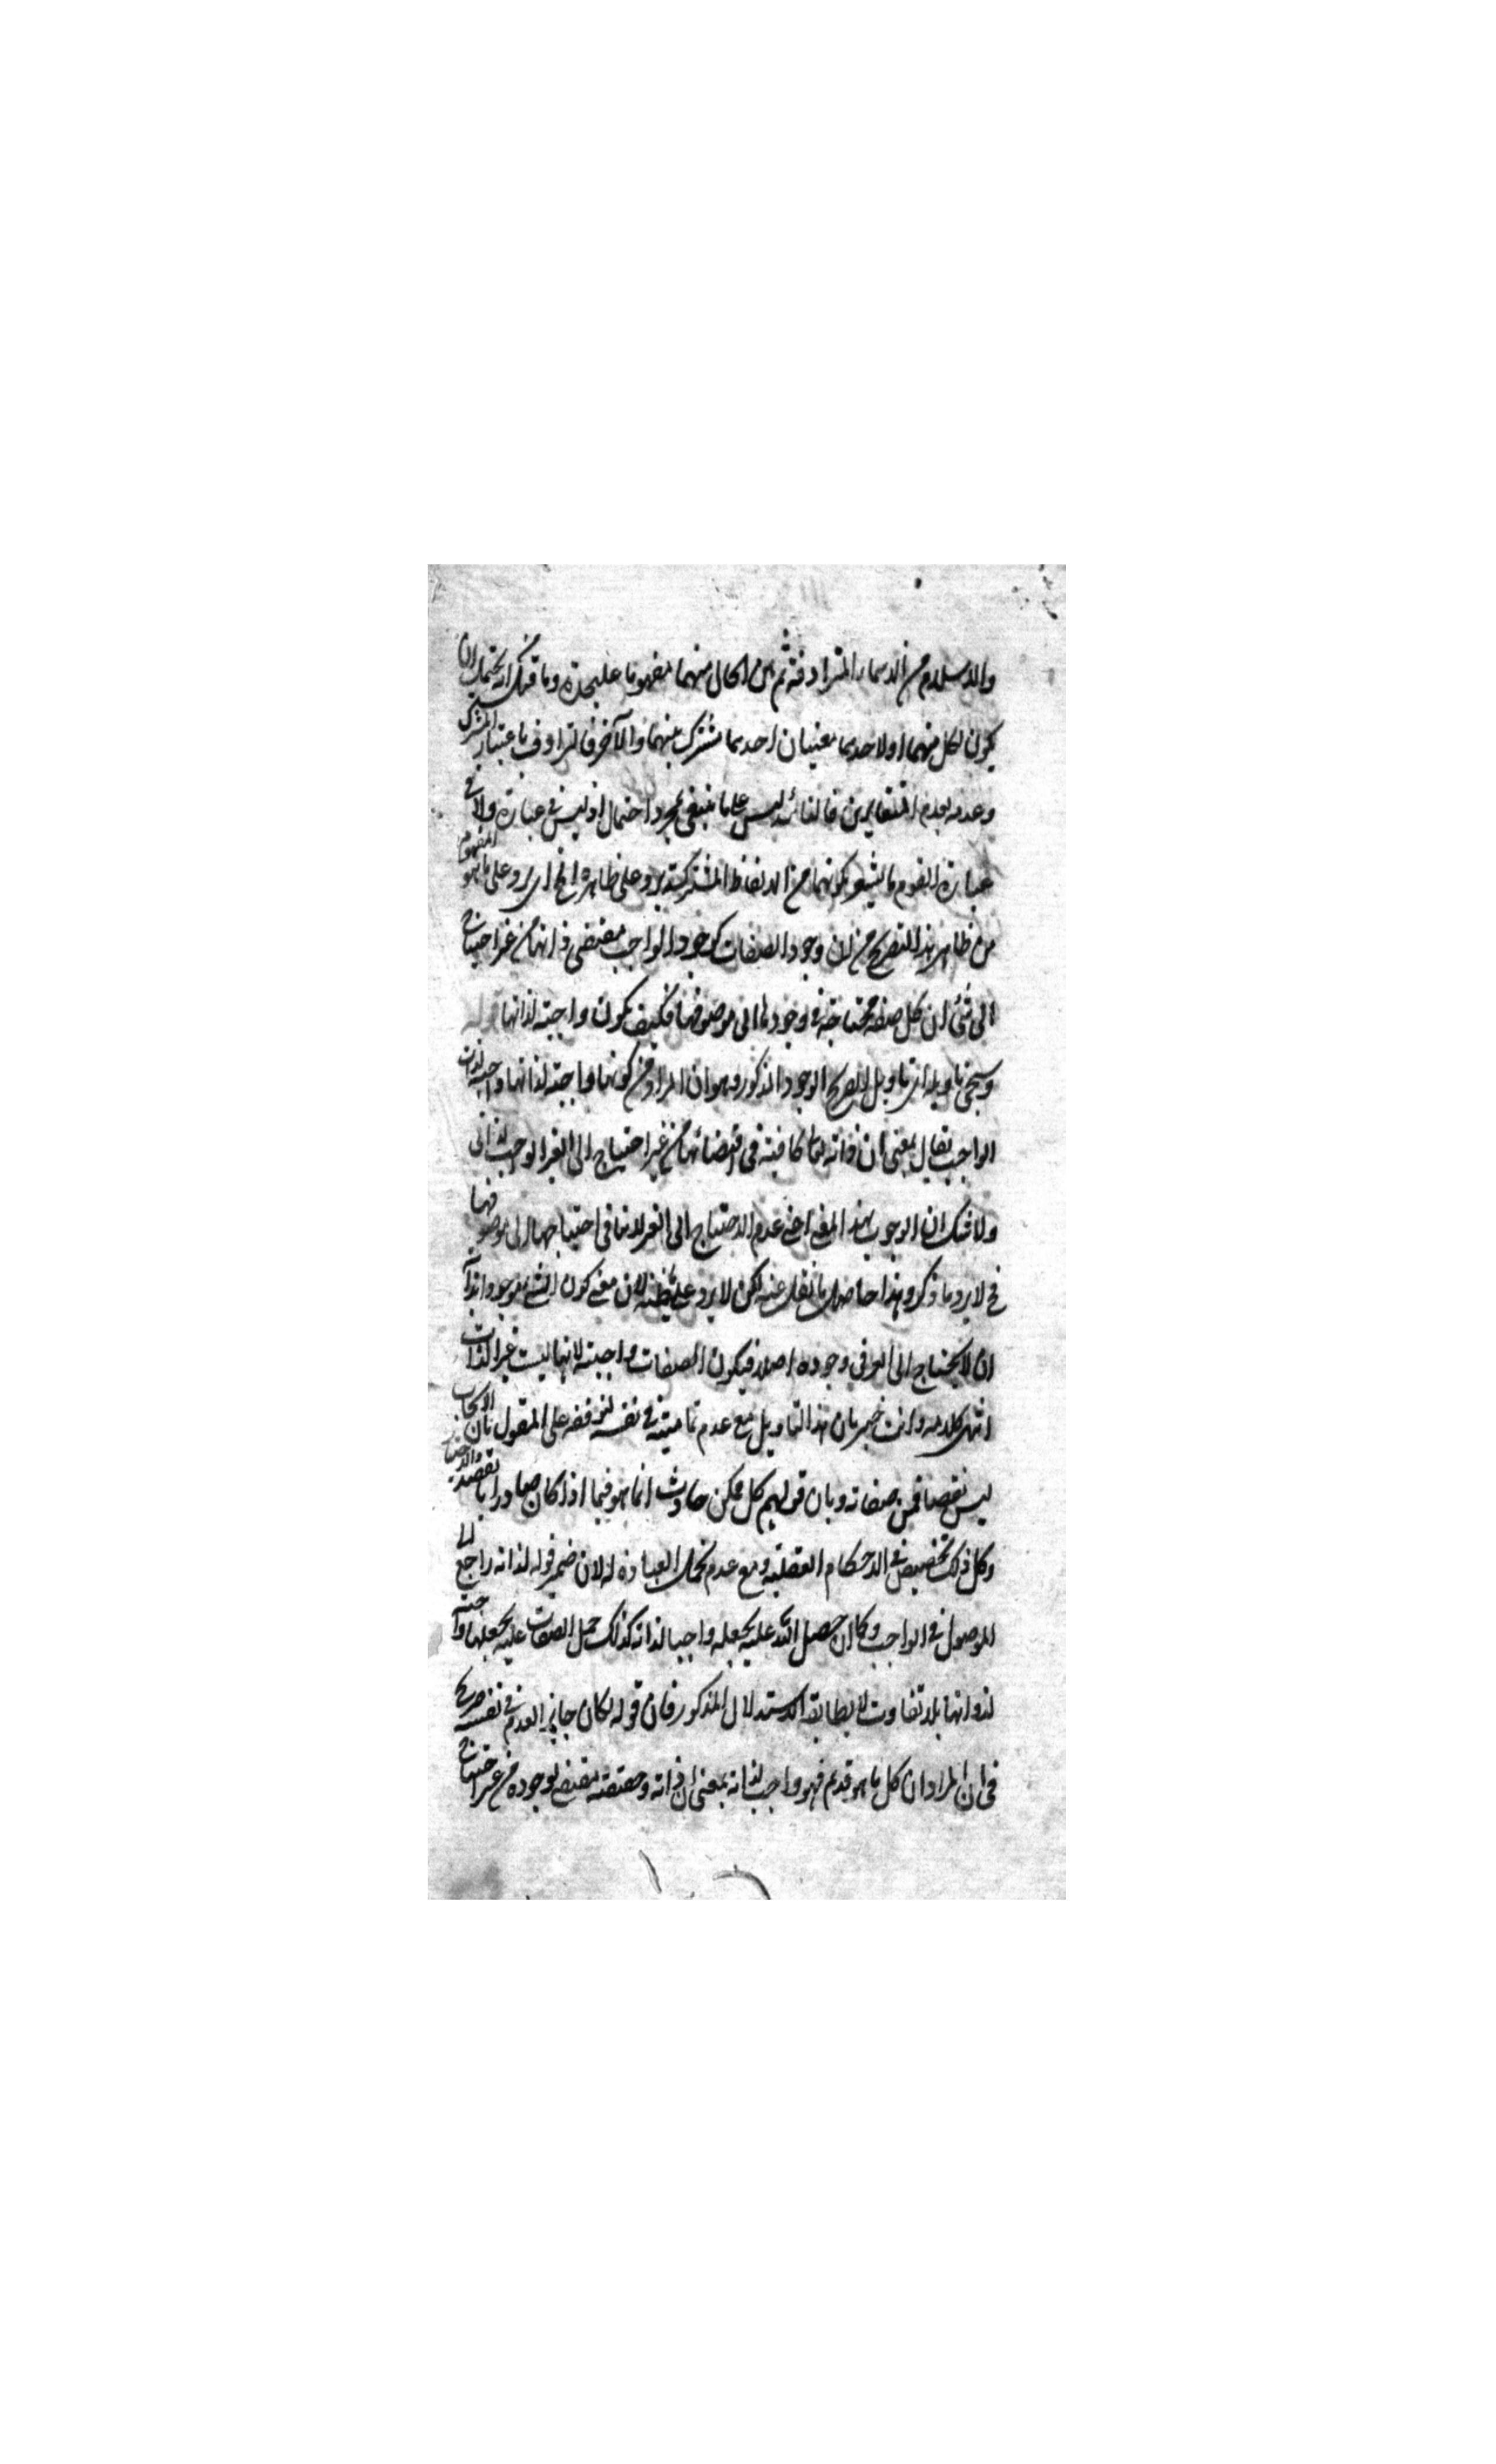 والاسلام من الاسماء المترادفة ثم بين لكل منهما مفهوما عليحدة وما قيل انه يحتمل ان
يكون لكل منهما او لاحدهما معنيان احدهما مشترك بينهما والآخر فالترادف باعتبار المشترك
وعدمه بعدم المتغايرين فالفائدة ليس على ما ينبغي بمجرد احتمال اذ ليس في عبارته ولا في
عبارة القوم ما يشعر بكونهما من الالفاظ المشتركة يرد على ظاهره الخ اي يرد على ما هو المفهوم
من ظاهر هذا التصريح من ان وجود الصفات كوجود الواجب مقتضى ذاتها من غير احتياج
الى شئ ان كل صفة محتاجة في وجودها الى موصوفها فكيف يكون واجبة لذاتها قوله
وسيجئ تاويله اي تاويل التصريح الوجود المذكور وهو ان المراد من كونها واجبة لذاتها واجبة لذات
الواجب تعالى بمعنى ان ذاته تعالى كافية في اقتضائها من غير احتياج الى الغير الواجب لذاتى
ولا شك ان الوجوب بهذا المعنى اعني عدم الاحتياج الى الغير لا ينافي احتياجها الى موصوفها
فح لا يرد ما ذكر وهذا حاصل ما نقل عنه لكن لا يرد على لان معنى كون الشئ موجودا لذاته
ان لا يحتاج الى الغير في وجوده اصلا فيكون الصفات واجبة لانها ليست غير الذات
انتهى كلامه وانت خبير بان هذا التاويل مع عدم تماميته في نفسه لتوقفه على القول بان الايجاب
ليس نقصا في صفاته وبان قولهم كل ممكن حادث انما هو فيما اذا كان صادرا بالقصد والاختيار
وكل ذلك تخصيص في الاحكام العقلية ومع عدم تحمل العبارة له لان ضمير قوله لذاته راجع الى
الموصول في الواجب وكما ان حمل الله عليه يجعله واجبا لذاته كذلك حمل الصفات عليه يجعلها واجبة
لذواتها بلا تفاوت لا يطابقه الاستدلال المذكور فان قوله لكان جايز العدم في نفسه صريح
في ان المراد ان كل ما هو قديم فهو واجب لذاته بمعنى ان ذاته وحقيقته يقتضي لوجوده من غير احتياج